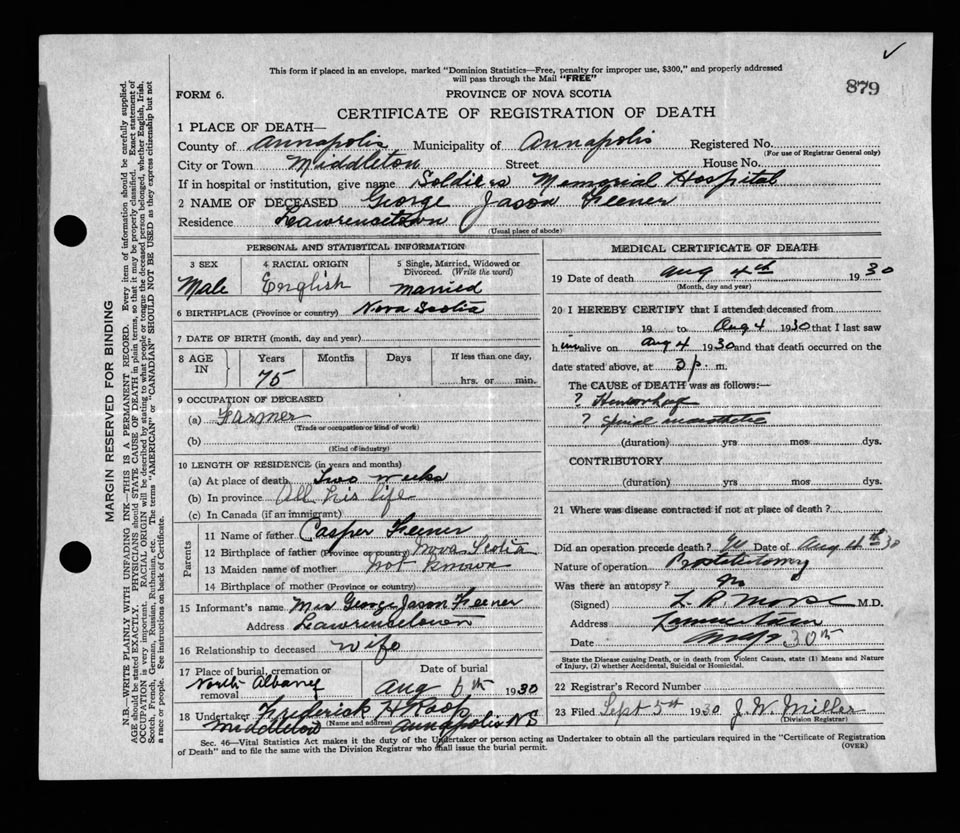 This form if placed in an envelope, marked "Dominion Statistics—Free, penalty for improper use, $300," and properly addressed
will pass through the Mail "FREE"
879
FORM 6.
PROVINCE OF NOVA SCOTIA
CERTIFICATE OF REGISTRATION OF DEATH
1 PLACE OF DEATH—
County of Annapolis Municipality of Annapolis Registered No.
(For use of Registrar General only)
City or Town Middleton Street House No.
If in hospital or institution, give name Soldiers Memorial Hospital
2 NAME OF DECEASED George Jason Feener
Residence Lawrencetown
(Usual place of abode)
PERSONAL AND STATISTICAL INFORMATION
3 SEX
4 RACIAL ORIGIN
5 Single, Married, Widowed or
Divorced. (Write the word)
Male English married
6 BIRTHPLACE (Province or country) Nova Scotia
7 DATE OF BIRTH (month, day and year)
8 AGE
IN
Years Months Days If less than one day,
75 hrs. or min.
9 OCCUPATION OF DECEASED
(a) Farmer
(Trade or occupation or kind of work)
(b)
(Kind of industry)
10 LENGTH OF RESIDENCE (in years and months)
(a) At place of death Two weeks
(b) In province All his life
(c) In Canada (if an immigrant)
Parents
11 Name of father Casper Feener
12 Birthplace of father (Province or country) Nova Scotia
13 Maiden name of mother not known
14 Birthplace of mother (Province or country)
15 Informant's name Mrs George Jason Feener
Address Lawrencetown
16 Relationship to deceased wife
17 Place of burial, cremation or
removal North Albany
Date of burial
Aug 6th 1930
18 Undertaker Frederick H Roop
(Name and address)
Middleton Annapolis NS
MEDICAL CERTIFICATE OF DEATH
19 Date of death Aug 4th 1930
(Month, day and year)
20 I HEREBY CERTIFY that I attended deceased from
19 to Aug 4 1930 that I last saw
him alive on Aug 4 1930 and that death occurred on the
date stated above, at 3 p. m.
The CAUSE of DEATH was as follows:—
? Hemorrhage
? Spinal
(duration) yrs mos dys.
CONTRIBUTORY
(duration) yrs mos dys.
21 Where was disease contracted if not at place of death?
Did an operation precede death? Date of Aug 4th 30
Nature of operation Prostatectomy
Was there an autopsy? no
(Signed) L. R. Morse M.D.
Address Lawrencetown
Date 30th
State the Disease causing Death, or in death from Violent Causes, state (1) Means and Nature
of Injury, (2) whether Accidental, Suicidal or Homicidal.
22 Registrar's Record Number
23 Filed Sept 5th 1930 J. W. Miller
(Division Registrar)
Sec. 46—Vital Statistics Act makes it the duty of the Undertaker or person acting as Undertaker to obtain all the particulars required in the "Certificate of Registration
of Death" and to file the same with the Division Registrar who shall issue the burial permit.
(OVER)
MARGIN RESERVED FOR BINDING
N.B.—WRITE PLAINLY WITH UNFADING INK—THIS IS A PERMANENT RECORD. Every item of information should be carefully supplied.
AGE should be stated EXACTLY. PHYSICIANS should STATE CAUSE OF DEATH in plain terms, so that it may be properly classified. Exact statement of
OCCUPATION is very important. RACIAL ORIGIN will be described by stating to what people or tongue the deceased person belonged, whether English, Irish,
Scotch, French, German, Russian, Ruthenian, etc. The terms "AMERICAN" or "CANADIAN" SHOULD NOT BE USED as they express citizenship but not
a race or people. See instructions on back of Certificate.